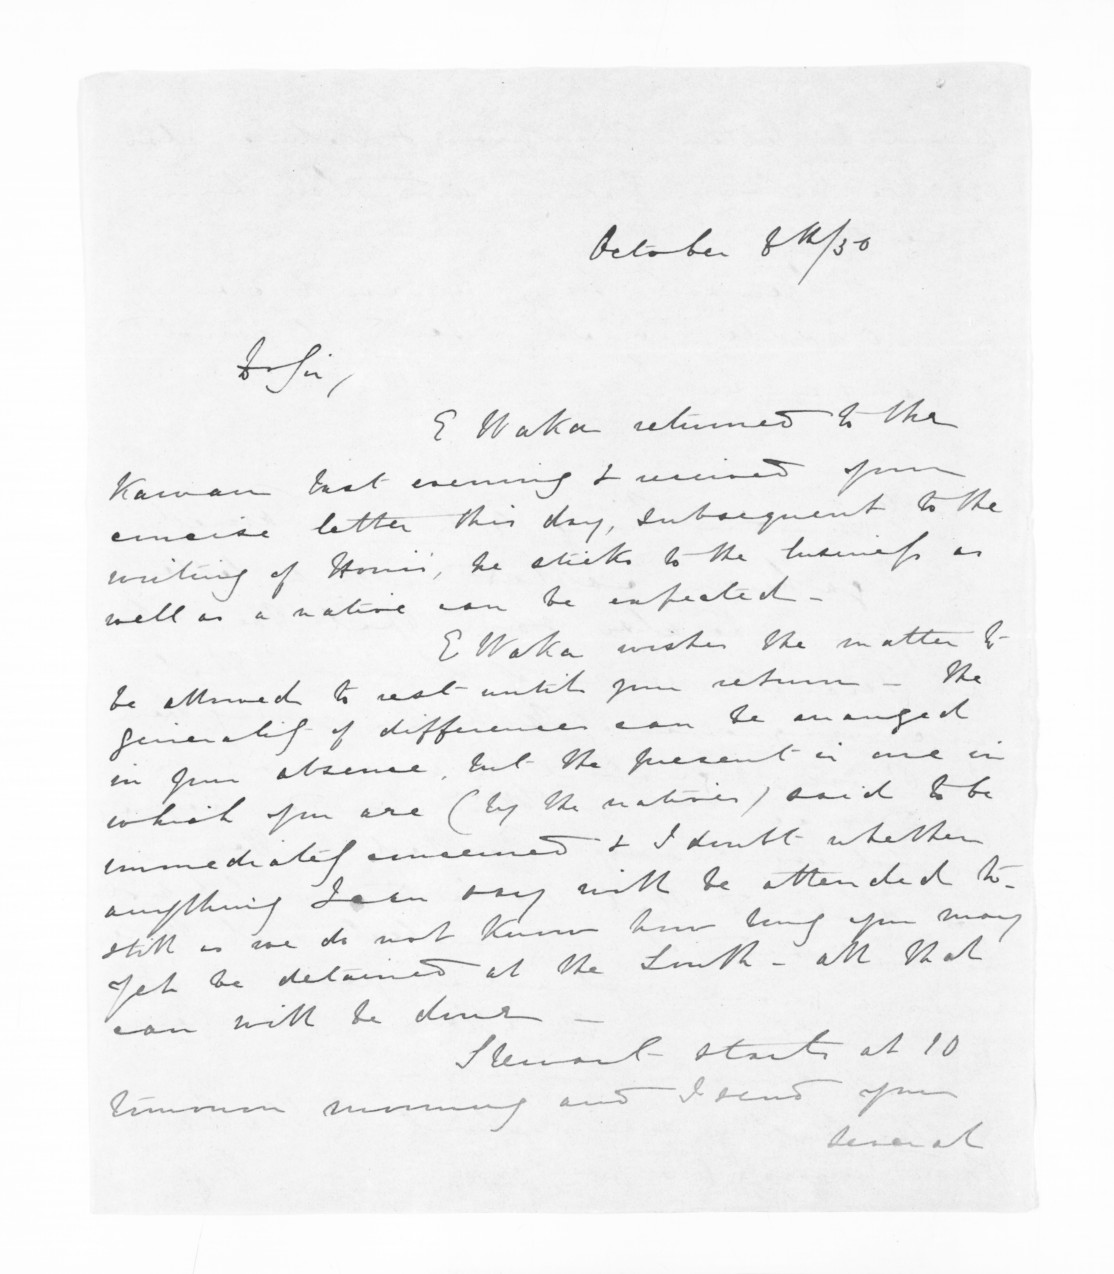 October 8th/50
Dr Sir,
E Waka returned to the
Kawau last evening & received your
concise letter this day, subsequent to the
writing of Honi's, he sticks to the business as
well as a native can be expected -
E Waka wishes the matter to
be allowed to rest until your return - The
generality of differences can be arranged
in your absence, but the present is one in
which you are (by the natives) said to be
immediately concerned & I doubt whether
anything I can say will be attended to -
still as we do not know how long you may
yet be detained at the South - all that
can will be done -
Stewart starts at 10
tomorrow morning and I send you
several